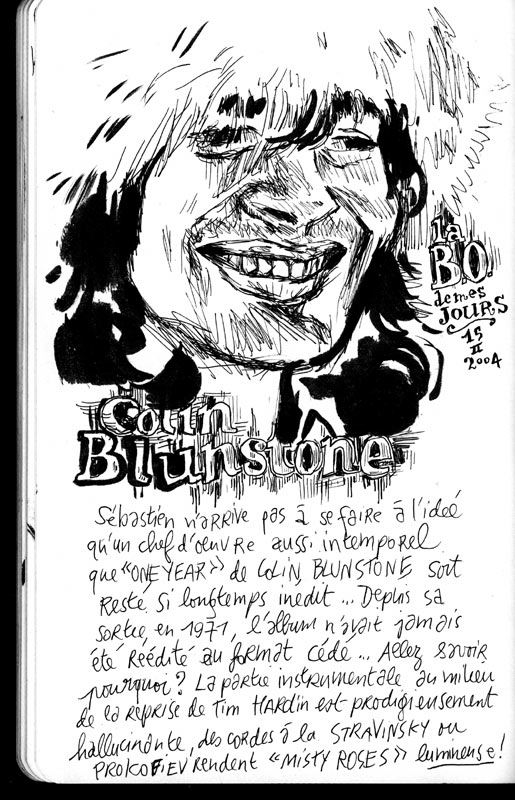 la
B.O.
de mes
JOURS
15
II
2004
Colin
Blunstone
Sébastien n'arrive pas à se faire à l'ideé
qu'un chef d'oeuvre aussi intemporel
que "ONE YEAR" de COLIN BLUNSTONE soit
Resté si longtemps inedit ... Depuis sa
sortie en 1971, l'album n'avait jamais
été Reédité au format cédé ... Allez savoir
pourquoi? La partie instrumentale au milieu
de la reprise de Tim HARDin est prodigieusement
hallucinante, des cordes à la STRAVINSKY ou
PROKOFIEV rendent «MISTY ROSES» lumineuse!